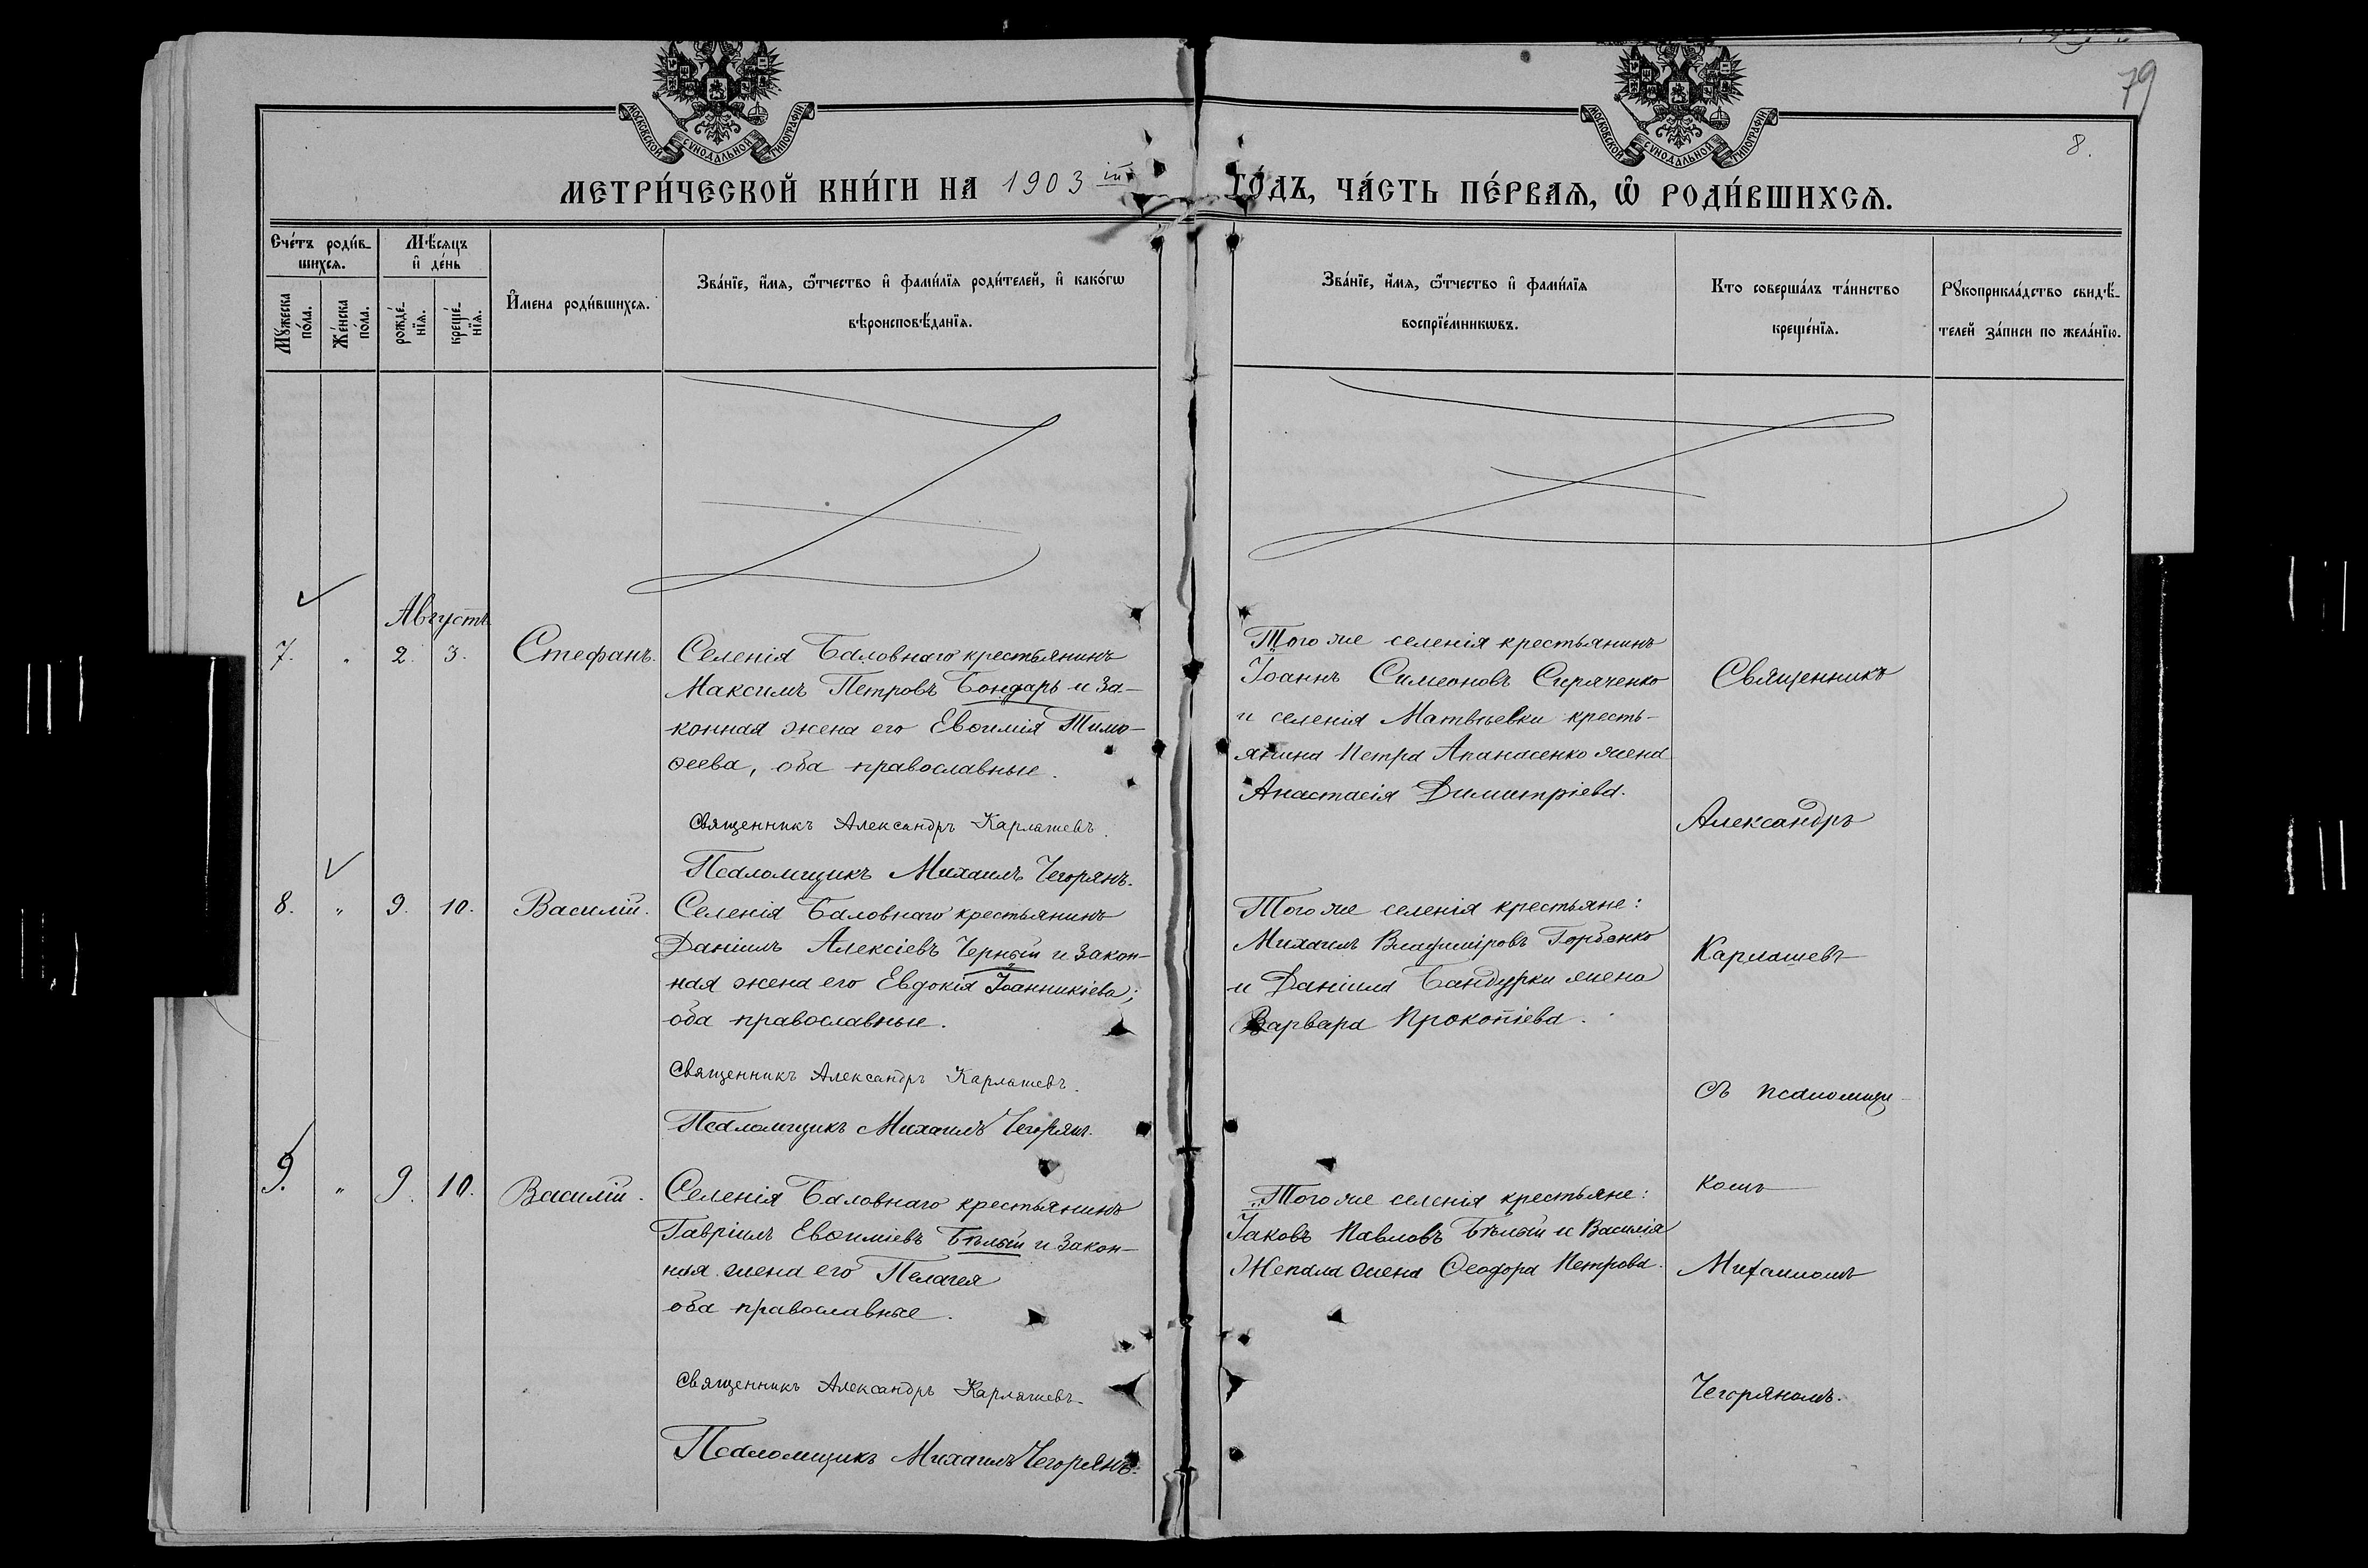 79
8.
МОСКОВСКОЙ СѴНОДАЛЬНОЙ ТИПОГРАФІИ
МОСКОВСКОЙ СѴНОДАЛЬНОЙ ТИПОГРАФІИ
МЕТРИ́ЧЕСКОЙ КНИ́ГИ НА 1903 ій ГО́ДЪ, ЧА́СТЬ ПЕ́РВАѦ, Ѽ РОДИ́ВШИХСѦ.
Сче́тъ роди́в-
шихсѧ.
Мѣ́сѧцъ
и҆ де́нь
Мꙋ́жеска
по́ла.
Же́нска
по́ла.
рожде́-
нїѧ.
креще́-
нїѧ.
И҆́мена роди́вшихсѧ.
Зва́нїе, и҆́мѧ, ѻ҆́тчество и҆ фами́лїѧ роди́телей, и҆ како́гѡ
вѣроисповѣ́данїѧ.
Зва́нїе, и҆́мѧ, ѻ҆́тчество и҆ фами́лїѧ
воспрїе́мникѡвъ.
Кто соверша́лъ та́инство
креще́нїѧ.
Рꙋкоприкла́дство свидѣ́-
телей за́писи по жела́нїю.
Августъ
7. " 2. 3. Стефанъ.
Селенія Баловнаго крестьянинъ
Максимъ Петровъ Бондарь и за-
конная жена его Евѳимія Тимо-
ѳеева, оба православные.
Священникъ Александръ Карлашевъ.
Псаломщикъ Михаилъ Чегорянъ.
Того же селенія крестьянинъ
Іоаннъ Симеоновъ Сиряченко
и селенія Матвѣевки кресть-
янина Петра Апанасенко жена
Анастасія Димитріева.
8. " 9. 10. Василій.
Селенія Баловнаго крестьянинъ
Даніилъ Алексіевъ Черный и закон-
ная жена его Евдокія Іоанникіева;
оба православные.
Священникъ Александръ Карлашевъ.
Псаломщикъ Михаилъ Чегорянъ.
Того же селенія крестьяне:
Михаилъ Владиміровъ Горбенко
и Даніила Бандурки жена
Варвара Прокопіева.
9. " 9. 10. Василій.
Селенія Баловнаго крестьянинъ
Гавріилъ Евѳиміевъ Бѣлый и закон-
ная жена его Пелагея
оба православные.
Священникъ Александръ Карлашевъ.
Псаломщикъ Михаилъ Чегорянъ.
Того же селенія крестьяне:
Іаковъ Павловъ Бѣлый и Василія
Жепала жена Ѳеодора Петрова.
Священникъ
Александръ
Карлашевъ
съ псаломщи-
комъ
Михаиломъ
Чегоряномъ.